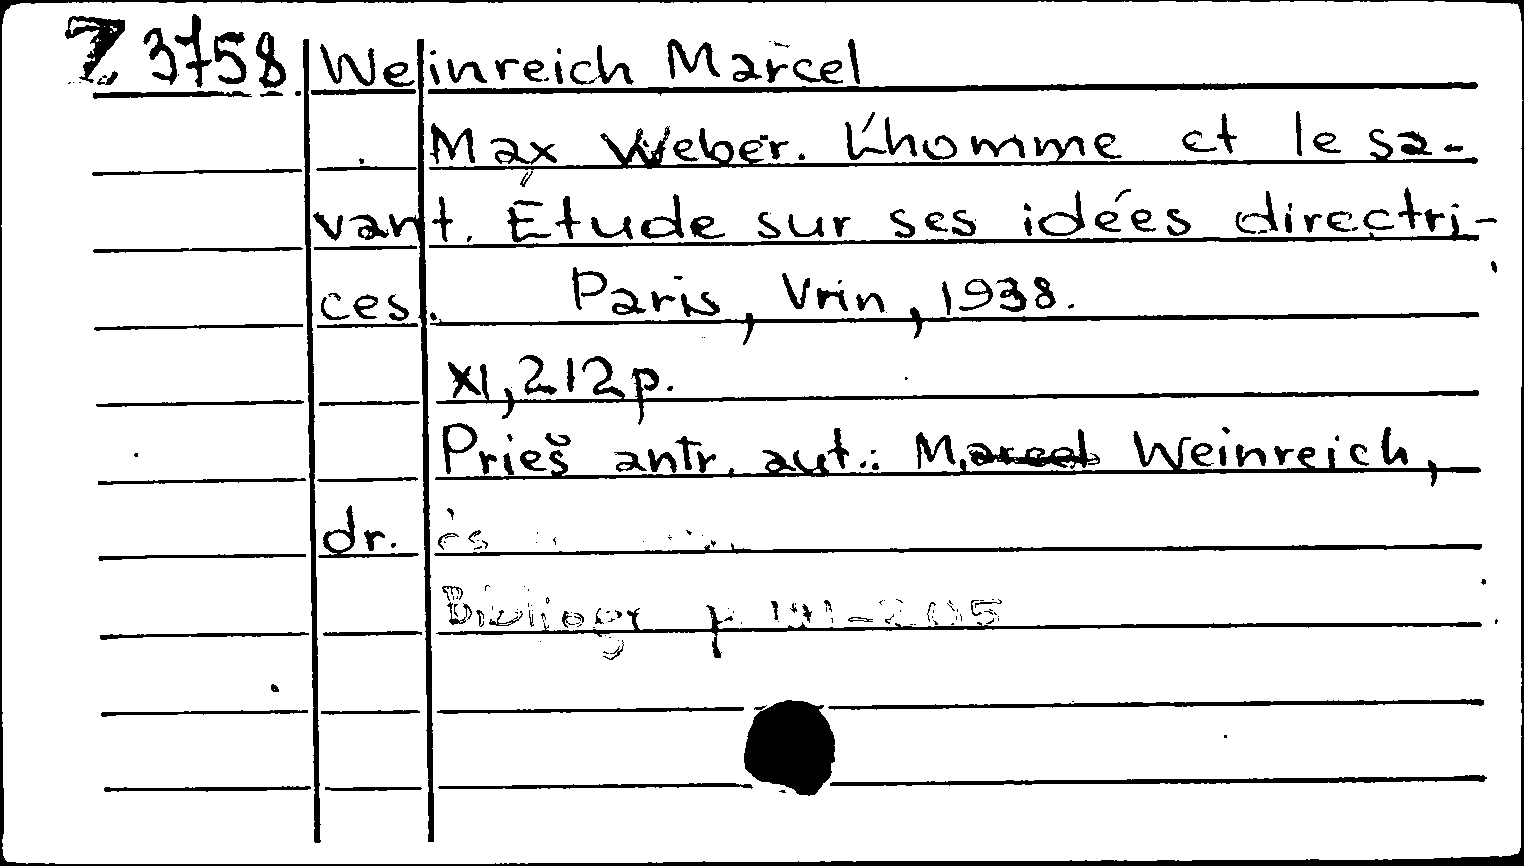 Z 3758 Weinreich Marcel
Max Weber. L'homme et le sa-
vant. Étude sur ses idées directri-
ces. Paris, Vrin, 1938.
XI, 212 p.
Prieš antr. aut.: M. Weinreich,
dr. ès
Bibliogr p 191-205